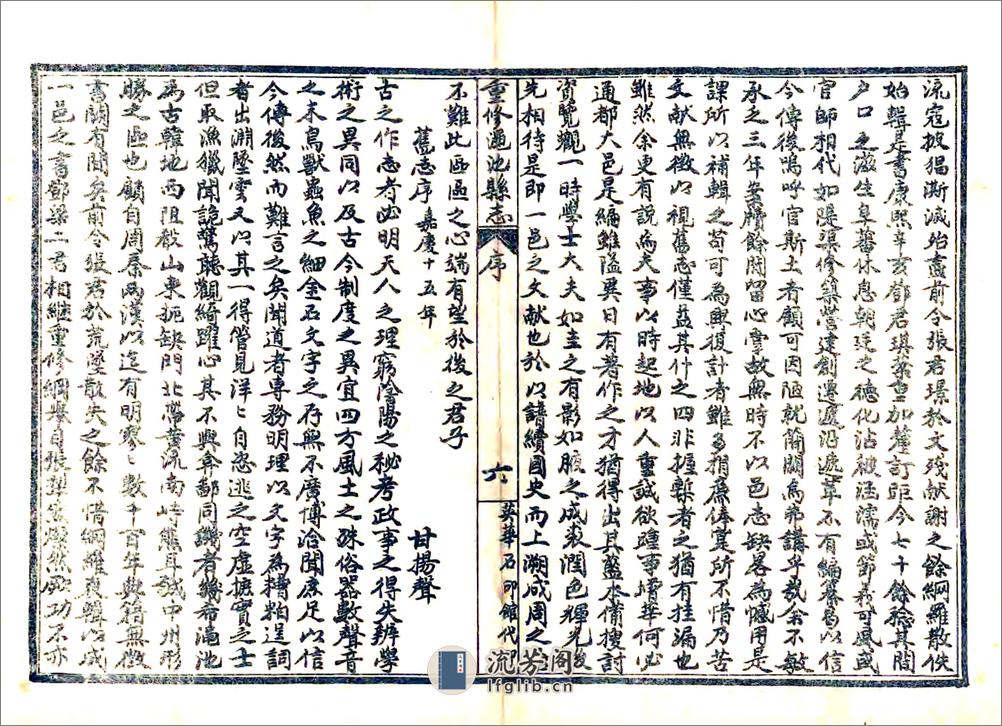 流寇披猖澌滅殆盡前令張君璟於文殘獻謝之餘網羅散佚
始輯是書康熙辛亥鄧君琪棻重加釐訂距今七十餘稔其間
戶口之滋生阜蕃休息朝廷之德化沾被涵濡或節義可風或
官師相代如隄渠修築營建創遷遞沿遞革不有編纂曷以信
今傳後嗚呼官斯土者顧可因陋就簡闕焉弗講乎哉余不敏
承乏三年案牘餘閒留心掌故無時不以邑志缺畧為憾用是
課所以補輯之苟可為興復計者雖多捐廉俸寔所不惜乃苦
文獻無徵以視舊志僅益其什之四非握槧者之猶有挂漏也
雖然余更有說焉夫事以時起地以人重誠欲踵事增華何必
通都大邑是編雖隘異日有著作之才猶得出其藍本備搜討
資覽觀一時學士大夫如圭之有影如腋之成裘潤色輝光後
先相待是即一邑之文獻也於以譜續國史而上溯成周之
重修澠池縣志 序 六 英華石印館代印
不難此區區之心端有望於後之君子
舊志序 嘉慶十五年 甘揚聲
古之作志者必明天人之理窮陰陽之秘考政事之得失辨學
術之異同以及古今制度之異宜四方風土之殊俗器數聲音
之末鳥獸蟲魚之細金石文字之存無不廣博洽聞庶足以信
今傳後然而難言之矣聞道者專務明理以文字為糟粕逞詞
者出淵墜雲又以其一得管見洋洋自恣逃之空虛摭實之士
但取漁獵聞詭驚聽觀綺羅心其不與牟鄙同譏者幾希澠池
為古韓地西阻殽山東扼缺門北帶黃流南峙熊耳誠中州形
勝之區也顧自周秦兩漢以迄有明寥寥數千百年典籍無徵
書闕有間矣前令張君於荒墜散失之餘不惜網羅裒輯以成
一邑之書鄧梁二君相繼重修綱舉目張犁然燦然厥功不亦
流芳閣
lfglib.cn